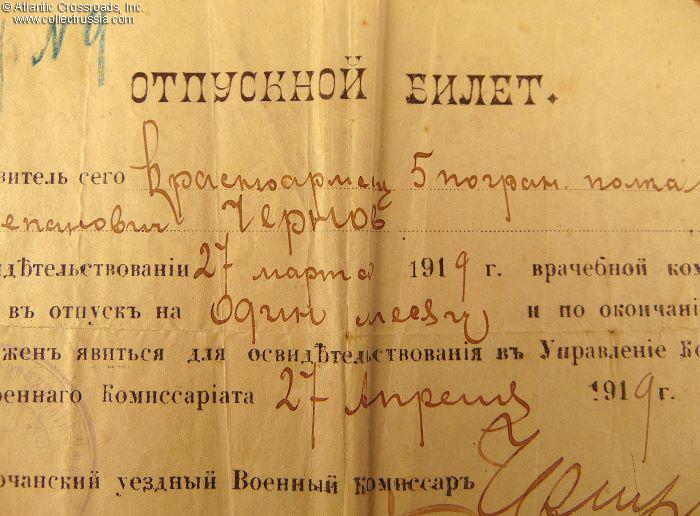 © Atlantic Crossroads, Inc.
www.collectrussia.com
№ 9
ОТПУСКНОЙ БИЛЕТ.
витель сего Красноармеец 5 погран. полка
епанович Чернов
идѣтельствованіи 27 марта 1919 г. врачебной ком
въ отпускъ на один месяц и по окончані
женъ явиться для освидѣтельствованія въ Управленіе Ко
оеннаго Комиссаріата 27 Апреля 1919 г.
очанский уездный Военный Комиссаръ